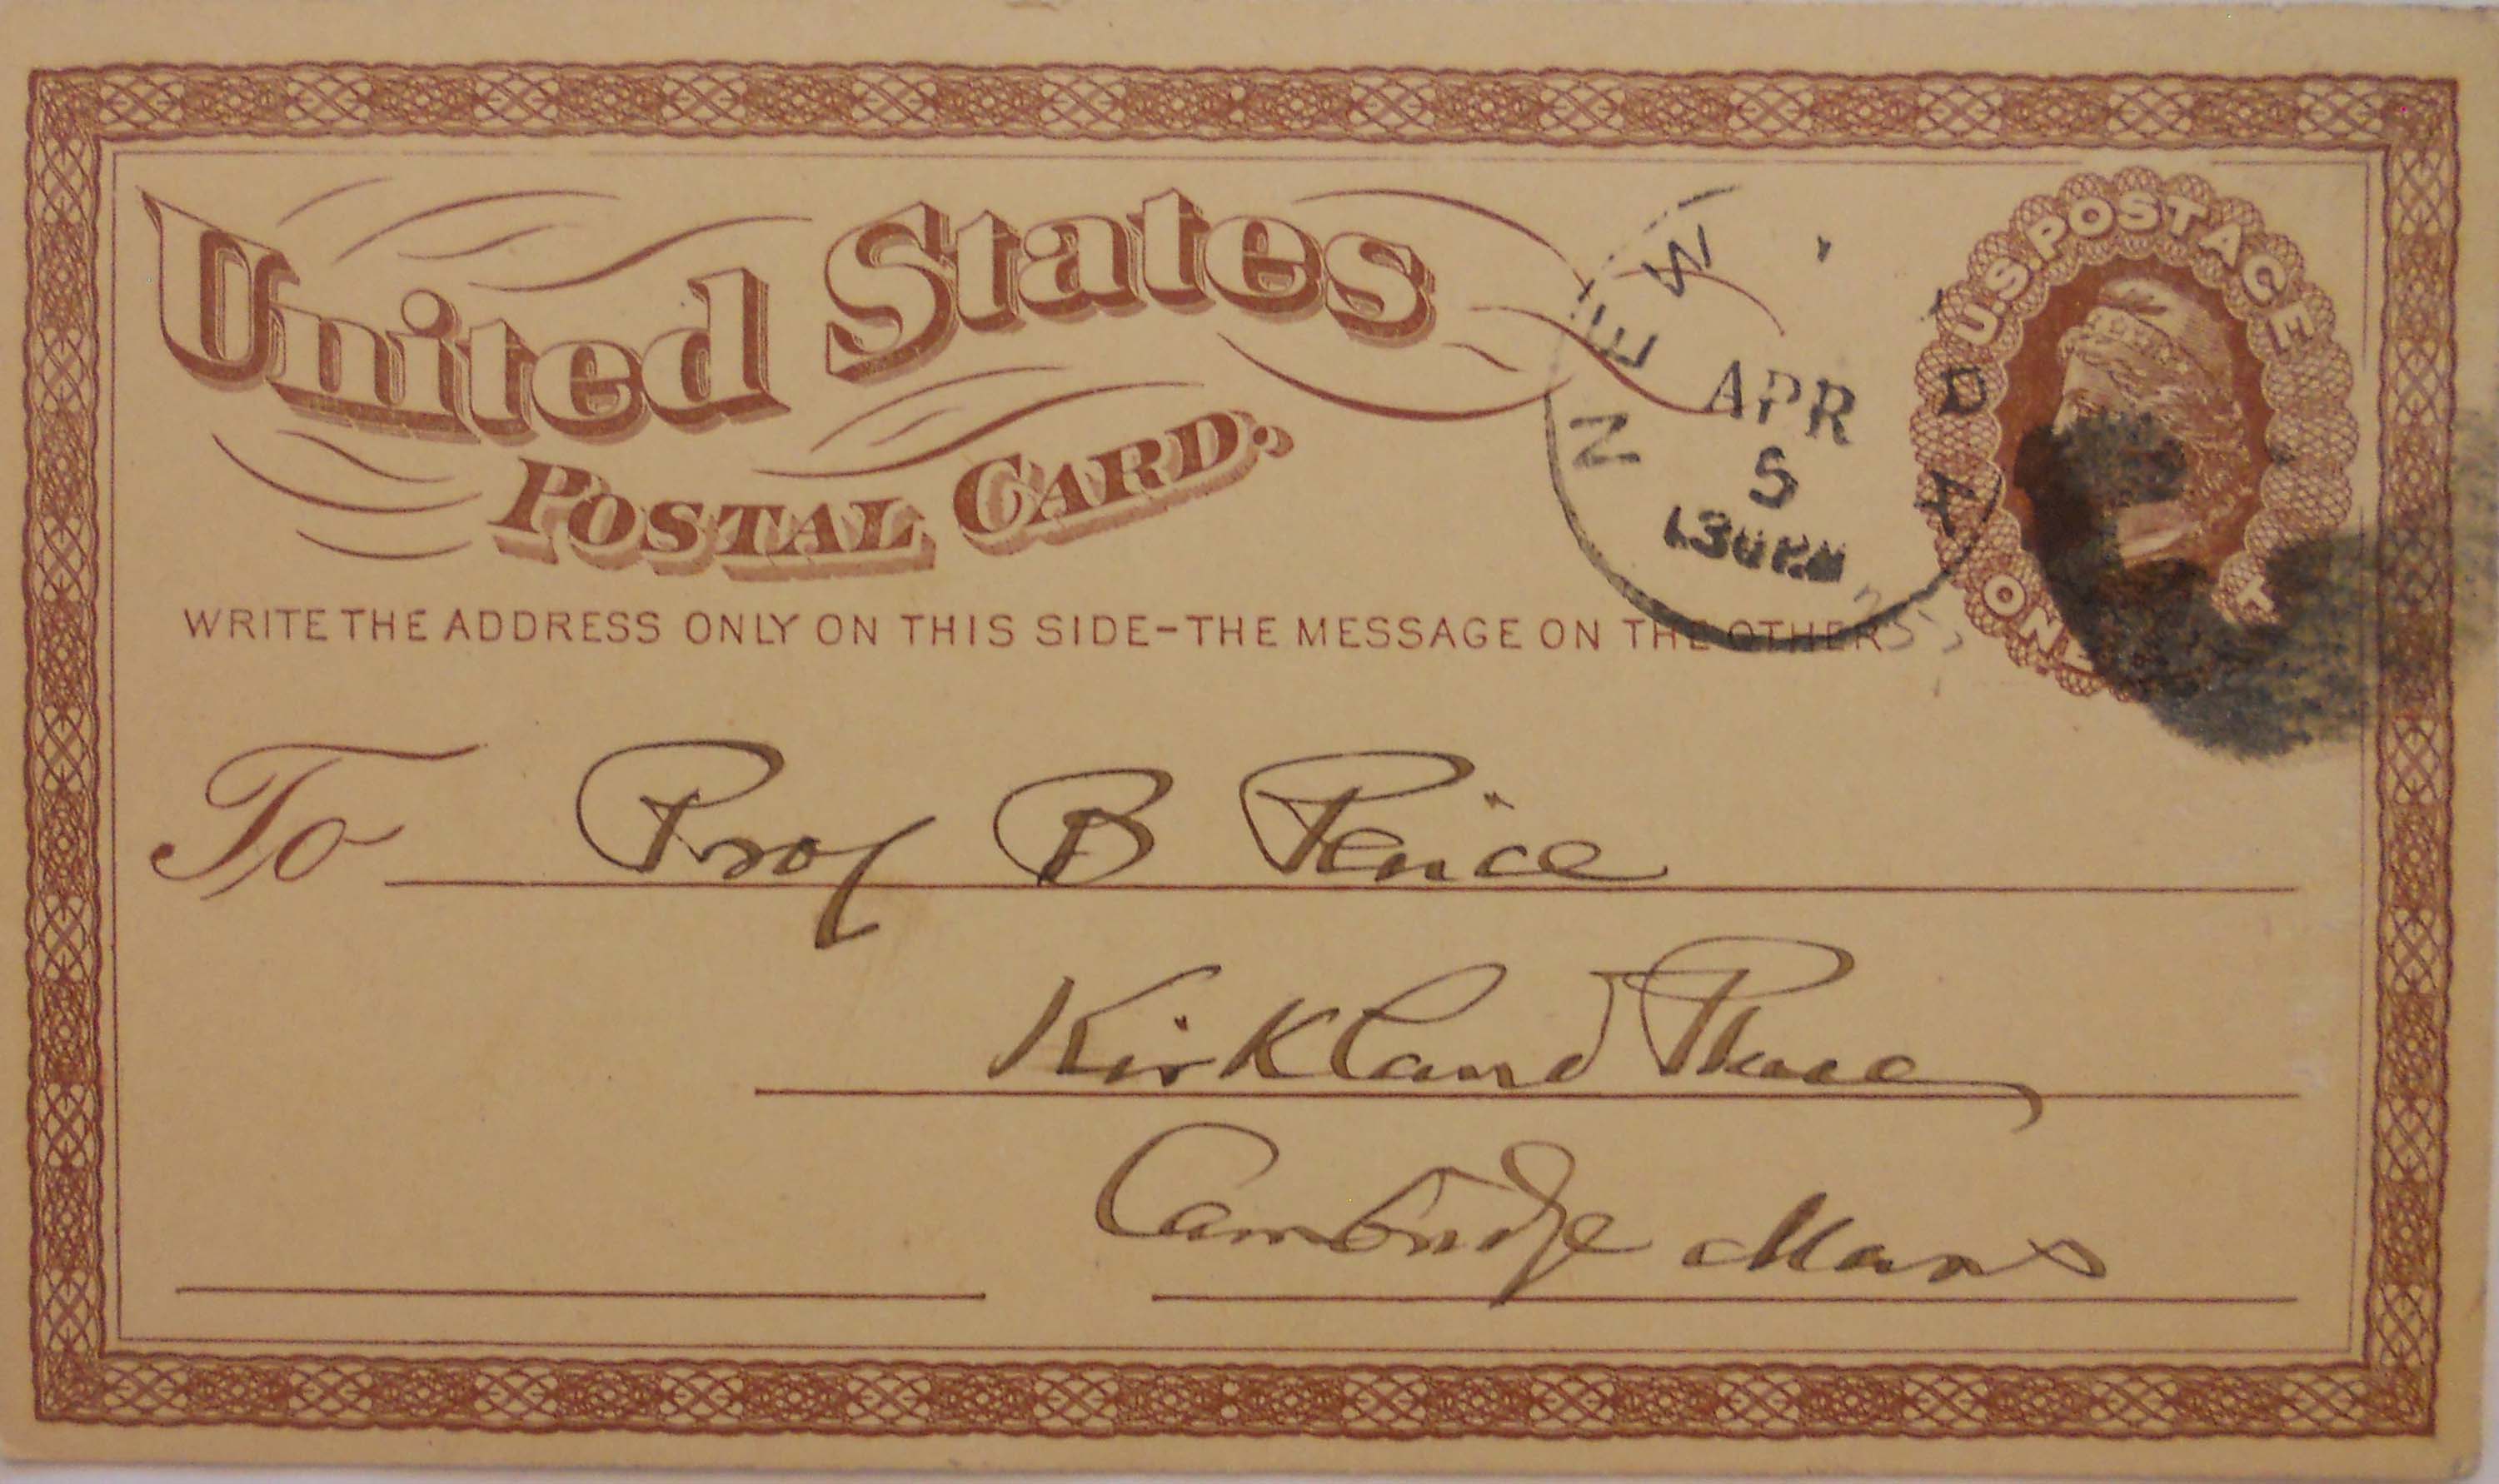 United States
POSTAL CARD.
WRITE THE ADDRESS ONLY ON THIS SIDE-THE MESSAGE ON THE OTHER
NEW
APR
5
130PM
U.S. POSTAGE
ONE
To Prof B Peirce
Kirkland Place
Cambridge Mass